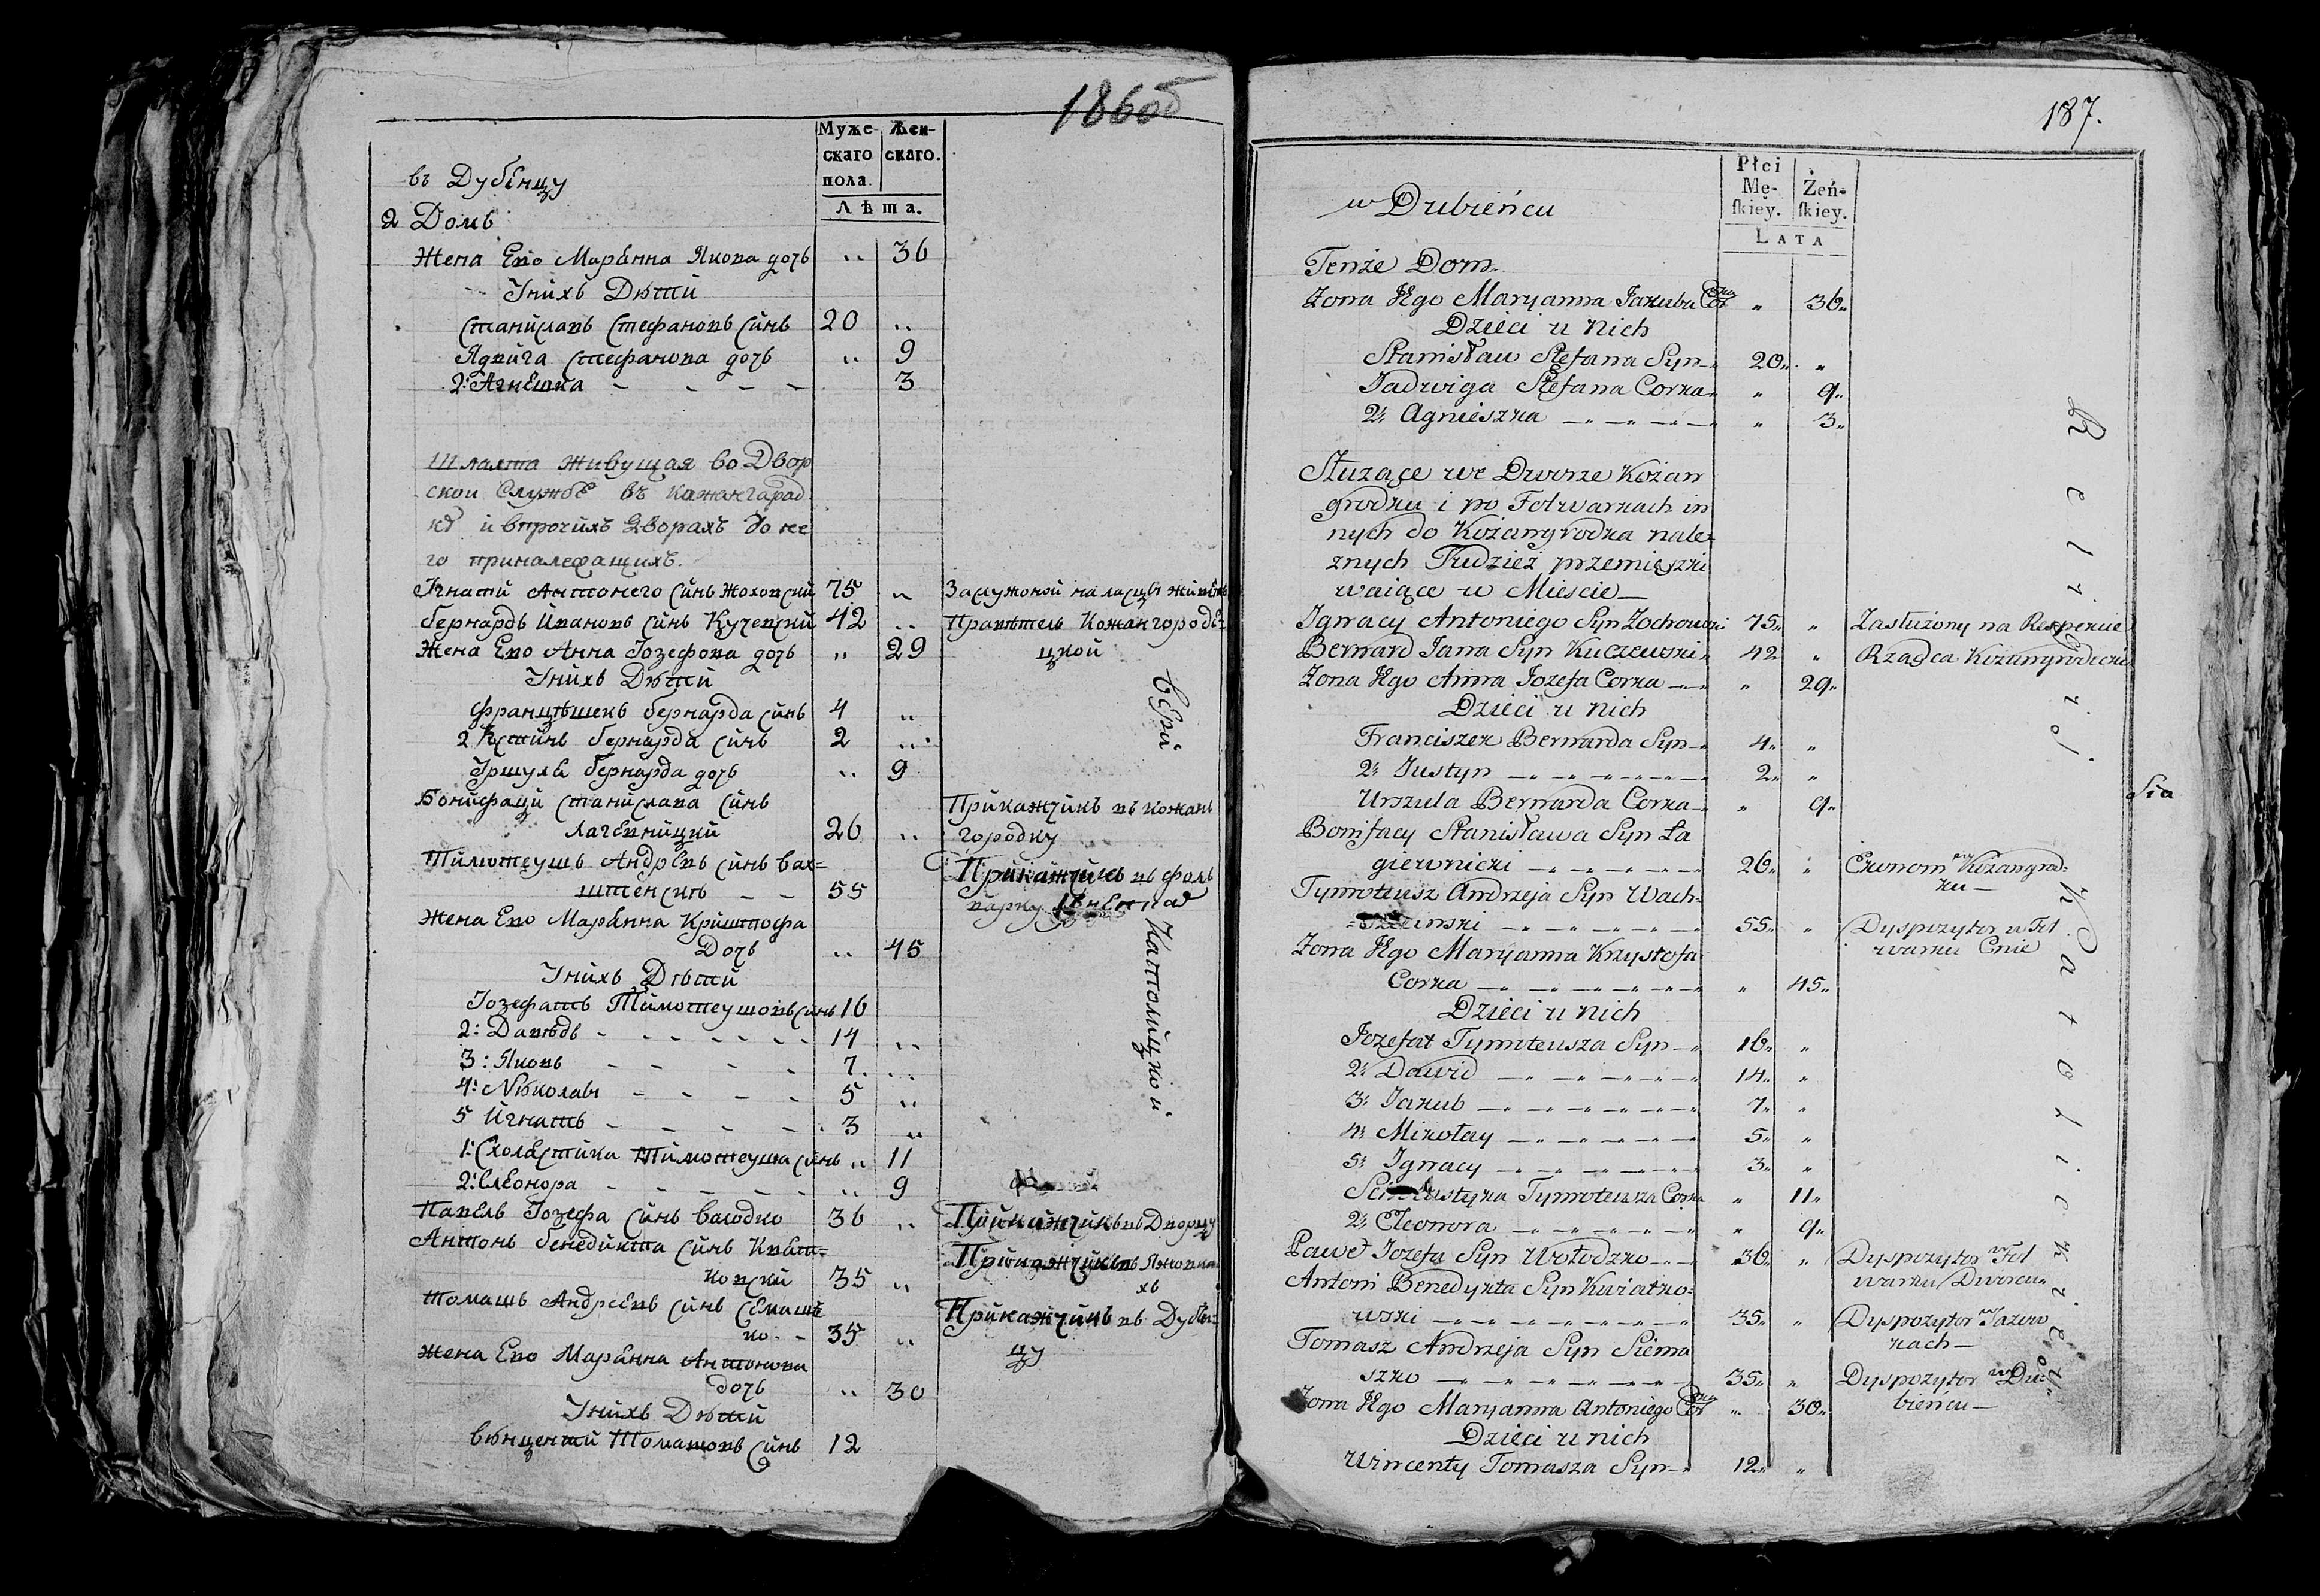 186об
Муже-
скаго
пола.
Жен-
скаго.
Лѣта.
въ Дубенцу
2 Домъ
Жена Его Марѣнна Якова дочь „ 36
Унихъ Дѣтй
Станиславъ Стефановъ Синъ 20 „
Ядвига Стефанова дочь „ 9
2: Агнешка - - - - 3
Шляхта живущая во Двор
ской Службе въ Кажангарад
кѣ и впрочихъ дворахъ до не
го приналежащихъ.
Игнатй Антонего Синъ Жоховский 75 „ Заслужоной на
Бернардъ Ивановъ Синъ Кучевский 42 „ Правѣтель Кожангородѣ-
Жена Его Анна Іозефова дочь „ 29 цкой
Унихъ Дѣтй
Францѣшекъ Бернарда Синъ 4 „
2 Юстинъ Бернарда Синъ 2 „
Уршуля Бернарда дочь „ 9
Бонифаци Станислава Синъ Прикажчикъ въ Кожанъ
Лагевницкий 26 „ городку
Тимотеушъ Андреевъ Синъ Вах= Прикажчикъ въ фоль
штенскъ - - 55 варку
Жена Его Марѣнна Криштофа
Дочь „ 45
Унихъ Дѣтй
Іозефатъ Тимотеушовъ Синъ 16
2: Давѣдъ - - - - - - 14 „
3: Яковъ - - - - 7. „
4: Николай - - - - 5 „
5 Игнатъ - - - - - 3 „
1: Схоластика Тимотеуша Синъ „ 11
2: Елеонора - - - - - „ 9
Павелъ Іозефа Синъ Валодко 36 „ Прикажчикъ въ Дворцу
Антонъ Бенедикта Синъ Квят= Прикажчикъ въ Язовка
ковский 35 „ хъ
Томашъ Андреевъ Синъ Семаш Прикажчикъ въ Дубен-
ко. - 35 „ цу
Жена Его Марѣнна Антонова
дочь „ 30
Унихъ Дѣтй
Вѣнцентй Томашовъ Синъ 12
вери
Католицкой
187.
Płci
Mę-
skiey.
Żeń-
skiey.
LATA
w Dubieńcu
Tenże Dom
Zona Jego Maryanna Jakuba Corka „ 36„
Dzieci u nich
Stanisław Stefana Syn 20„ „
Jadwiga Stefana Corka „ 9„
2: Agnieszka „ 3„
Służące we Dworze Kożan
grodku i po Folwarkach in
nych do Kożangrodka nale-
znych Tudzież przemieszki
waiące w Mieście
Ignacy Antoniego Syn Zochowski 75„ „ Zasłużony na Respekcie
Bernard Jana Syn Kuczewski 42 „ Rządca Kożangrodecki
Zona Jego Anna Jozefa Corka „ 29„
Dzieci u nich
Franciszek Bernarda Syn 4„ „
2: Justyn 2„ „
Urszula Bernarda Corka „ 9„
Bonifacy Stanisława Syn Ła
giewnicki 26„ „ Ekonom przy Kożangrod-
ku
Tymoteusz Andrzeja Syn Wach-
55„ „ Dyspozytor w Fol
Zona Jego Maryanna Krzysztofa warku Cnie
Corka „ 45„
Dzieci u nich
Jozefat Tymoteusza Syn 16„ „
2: Dawid 14„ „
3: Jakub 7„ „
4: Mikołay 5„ „
5: Ignacy 3„ „
Tymoteusza Corka „ 11„
2: Eleonora „ 9„
Paweł Jozefa Syn Wołodzko 36„ „ Dyspozytor w Fol
Antoni Benedykta Syn Kwiatko= warku Dworcu
wski 35„ „ Dyspozytor w Jazow
Tomasz Andrzeja Syn Siema kach
szko 35„ „ Dyspozytor w Du-
Zona Jego Maryanna Antoniego Corka „ 30„ bieńcu
Dzieci u nich
Wincenty Tomasza Syn 12„ „
Religij.
Katolickiej
Sia